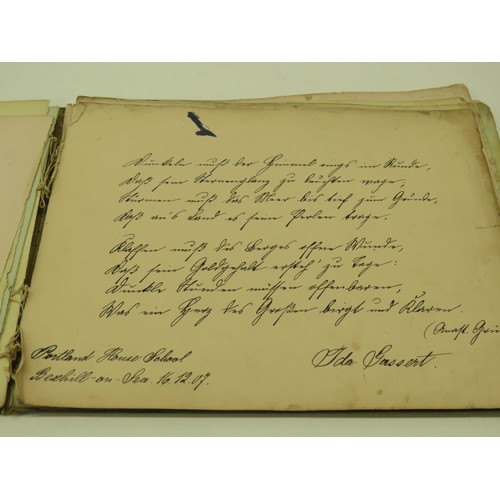 Dunkeln muß der Himmel rings im Runde,
Daß sein Sternenglanz zu leuchten wage;
Stürmen muß das Meer bis tief zum Grunde,
Daß an's Land es seine Perlen trage.
Klaffen muß des Berges offne Wunde,
Daß sein Goldgehalt ersteh' zu Tage:
Dunkle Stunden müssen offenbaren,
Was ein Herz des Großen birgt und Klaren.
(Anast. Grü
Portland House School
Bexhill-on-Sea 16.12.07.
Ida Gassert.